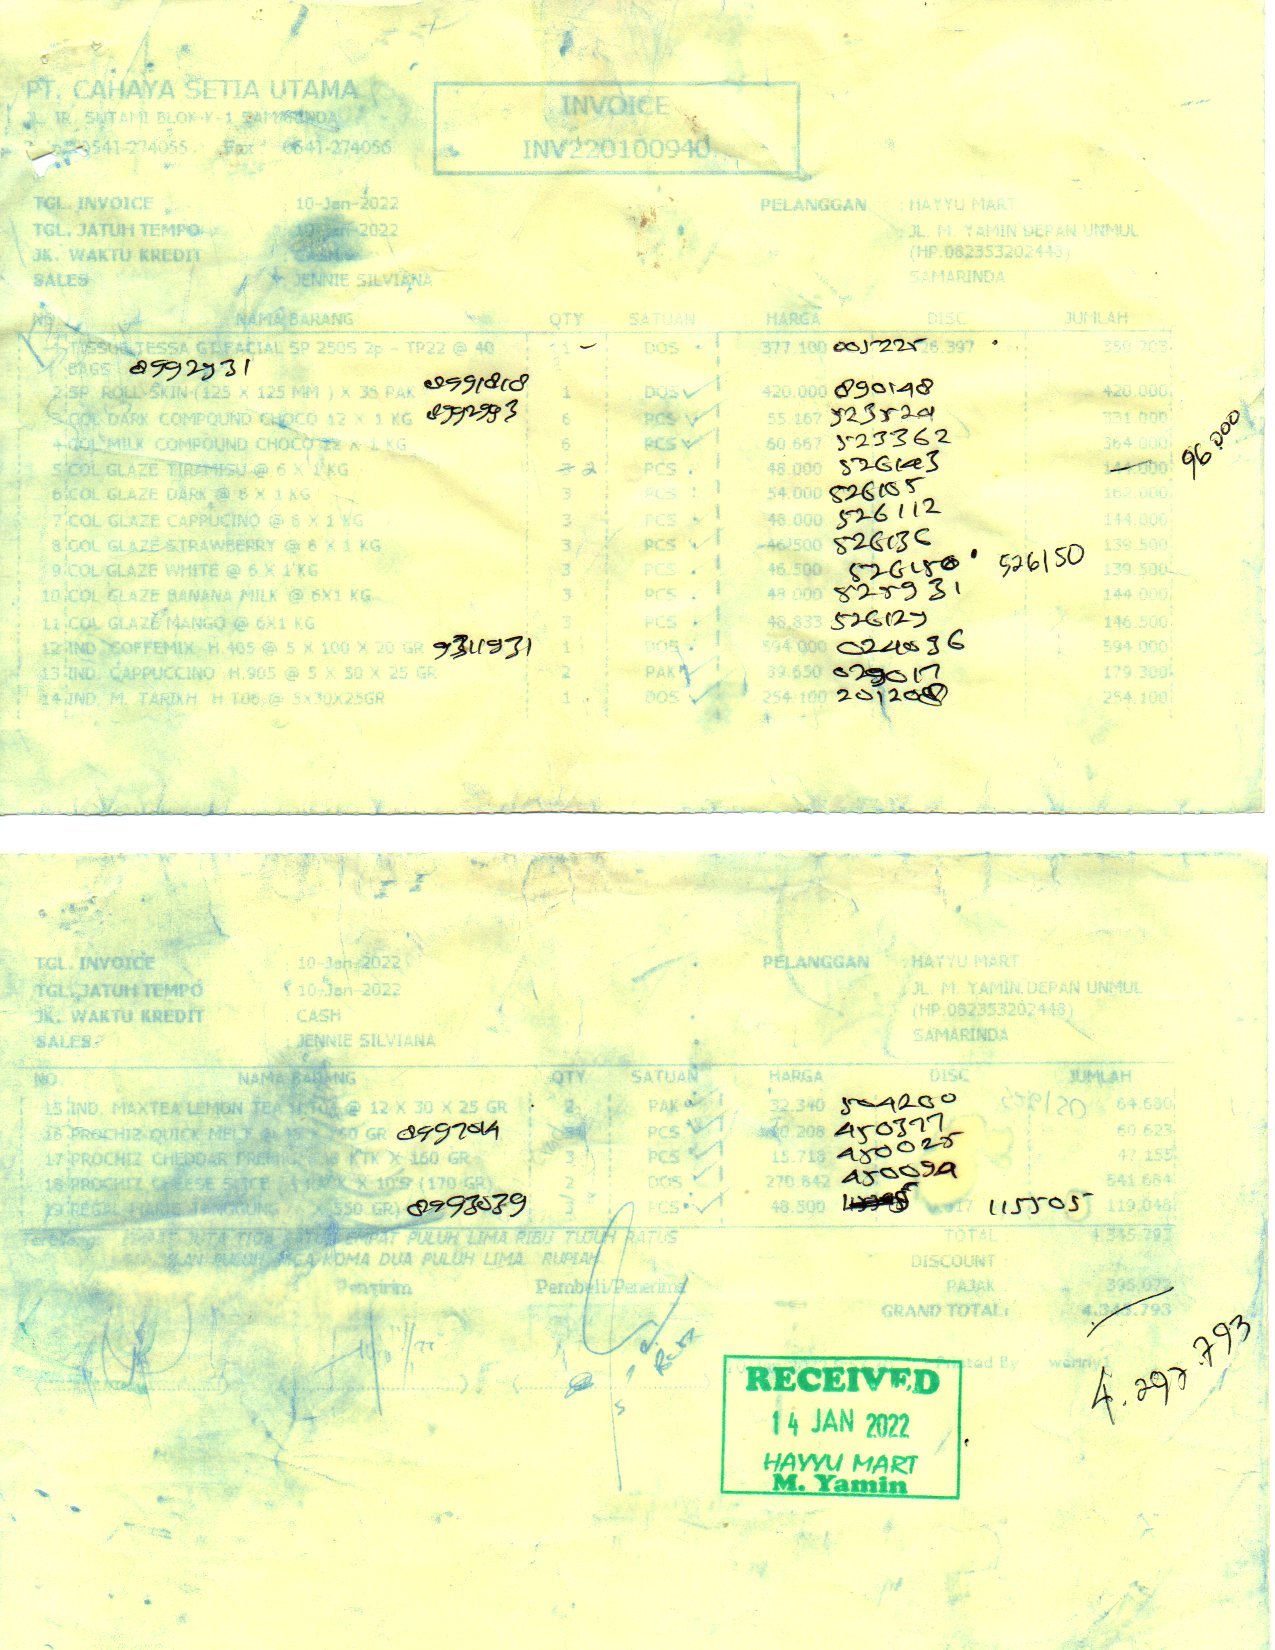 PT. CAHAYA SETIA UTAMA
JL. IR. SUTAMI BLOK-K-1 SAMARINDA
0541-274055 Fax 0541-274056
INVOICE
INV220100940
TGL. INVOICE : 10-Jan-2022
TGL. JATUH TEMPO : 10-Jan-2022
JK. WAKTU KREDIT : CASH
SALES : JENNIE SILVIANA
PELANGGAN : HAYYU MART
JL. M. YAMIN DEPAN UNMUL
(HP.082353202448)
SAMARINDA
NO NAMA BARANG QTY SATUAN HARGA DISC JUMLAH
1 TISSUE TESSA GT FACIAL SP 250S 2p - TP22 @ 40 1 DOS 377.100 005225 26.397 350.703
BAGS 8992931
2 SP ROLL SKIN (125 X 125 MM ) X 35 PAK 8991818 1 DOS 420.000 890148 420.000
3 COL DARK COMPOUND CHOCO 12 X 1 KG 8992993 6 PCS 55.167 331.000
4 COL MILK COMPOUND CHOCO 12 X 1 KG 6 PCS 60.667 523362 364.000
5 COL GLAZE TIRAMISU @ 6 X 1 KG 3 2 PCS 48.000 526143 144.000 96.000
6 COL GLAZE DARK @ 6 X 1 KG 3 PCS 54.000 526105 162.000
7 COL GLAZE CAPPUCINO @ 6 X 1 KG 3 PCS 48.000 526112 144.000
8 COL GLAZE STRAWBERRY @ 6 X 1 KG 3 PCS 46.500 526136 139.500
9 COL GLAZE WHITE @ 6 X 1 KG 3 PCS 46.500 526150 526150 139.500
10 COL GLAZE BANANA MILK @ 6X1 KG 3 PCS 48.000 525931 144.000
11 COL GLAZE MANGO @ 6X1 KG 3 PCS 48.833 526129 146.500
12 IND. COFFEMIX H.405 @ 5 X 100 X 20 GR 9311931 1 DOS 594.000 024036 594.000
13 IND. CAPPUCCINO H.905 @ 5 X 50 X 25 GR 2 PAK 89.650 029017 179.300
14 IND. M. TARIKH H.106 @ 5X30X25GR 1 DOS 254.100 201208 254.100
TGL. INVOICE : 10-Jan-2022
TGL. JATUH TEMPO : 10-Jan-2022
JK. WAKTU KREDIT : CASH
SALES : JENNIE SILVIANA
PELANGGAN : HAYYU MART
JL. M. YAMIN DEPAN UNMUL
(HP.082353202448)
SAMARINDA
NO NAMA BARANG QTY SATUAN HARGA DISC JUMLAH
15 IND. MAXTEA LEMON TEA @ 12 X 30 X 25 GR 2 PAK 32.340 504200 64.680
16 PROCHIZ QUICK MELT GR 8997014 PCS 450377 60.623
17 PROCHIZ CHEDDAR KTK X 160 GR 3 PCS 15.718 450025 47.155
18 PROCHIZ X 10'S (170 GR) 2 DOS 270.842 450094 541.684
19 REGAL MARIE X 550 GR) 8993039 3 PCS 48.500 115505 119.048
Terbilang : EMPAT JUTA TIGA RATUS EMPAT PULUH LIMA RIBU TUJUH RATUS
SEMBILAN PULUH TIGA KOMA DUA PULUH LIMA RUPIAH
TOTAL : 4.345.793
DISCOUNT
PAJAK 395.072
GRAND TOTAL : 4.345.793
Pengirim Pembeli/Penerima
4.297.793
Printed By
RECEIVED
14 JAN 2022
HAYYU MART
M. Yamin